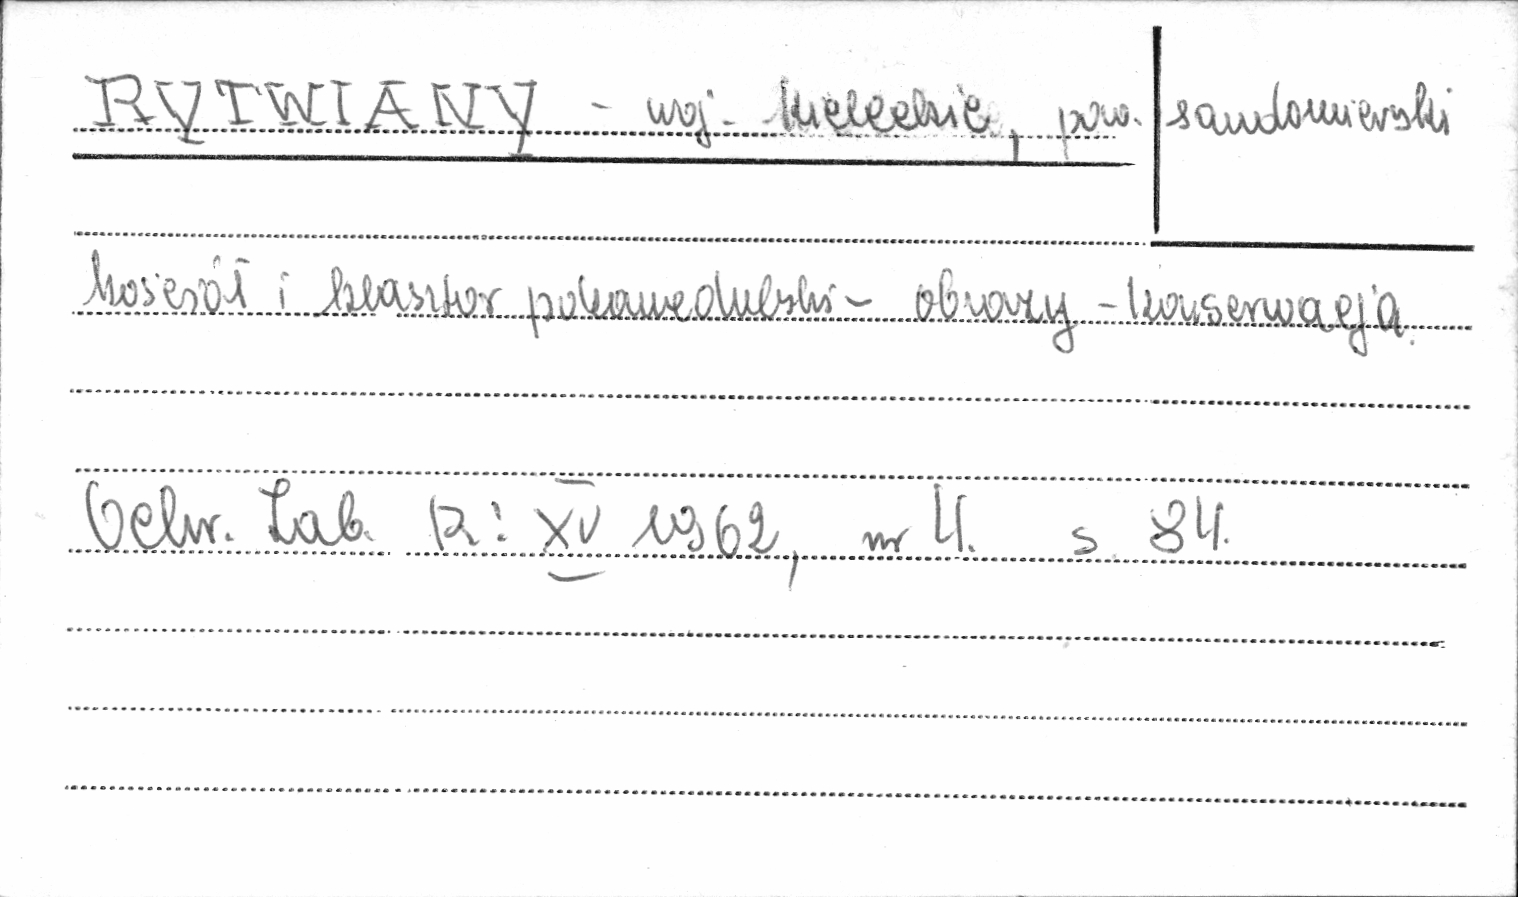 RYTWIANY - woj. kieleckie, pow. sandomierski
kościół i klasztor pokamedulski - obrazy - konserwacja.
Ochr. Zab. R: XV 1962, nr 4. s. 84.